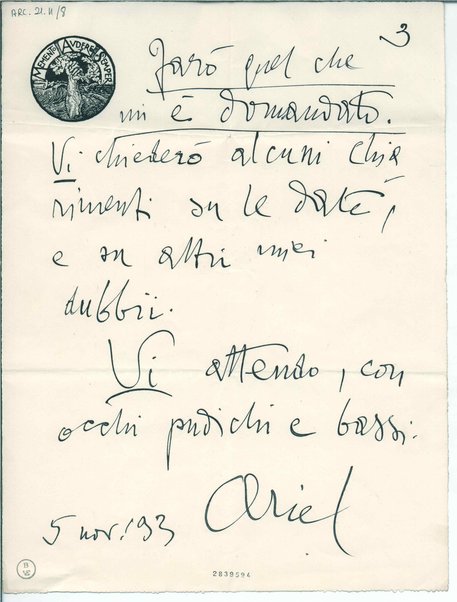 ARC. 21. II/8
MEMENTO AUDERE SEMPER
3
Farò quel che
mi è domandato.
Vi chiederò alcuni chia
rimenti su le date,
e su altri miei
dubbii.
Vi attendo, con
occhi pudichi e bassi.
Ariel
5 nov. '933
2839594